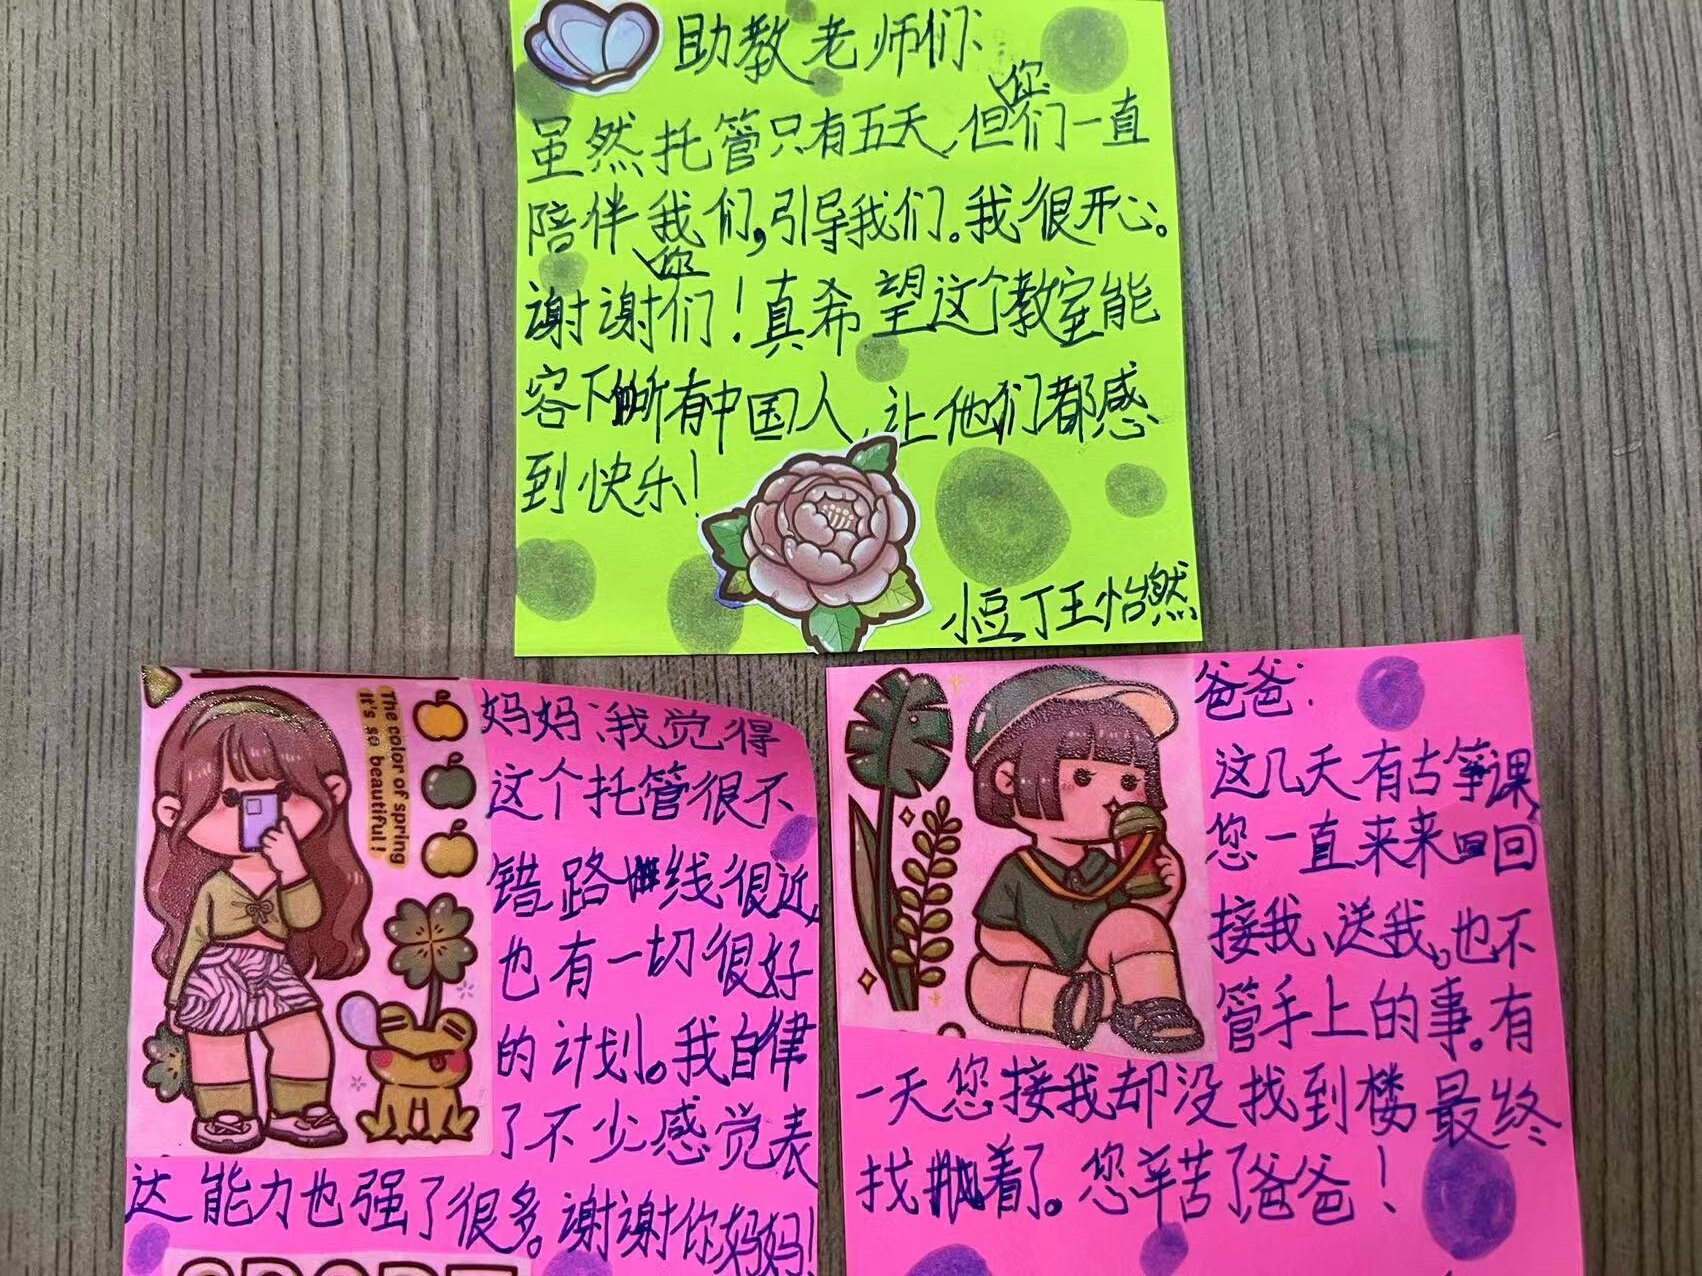 助教老师们:
虽然托管只有五天,但您们一直
陪伴我们,引导我们。我很开心。
谢谢您们!真希望这个教室能
容下所有中国人,让他们都感
到快乐!
小豆丁王怡然
The color of spring
it's so beautiful!
妈妈:我觉得
这个托管很不
错路线很近,
也有一切很好
的计划。我自律
了不少感觉表
达能力也强了很多。谢谢你妈妈!
爸爸:
这几天有古筝课,
您一直来来回回
接我、送我。也不
管手上的事。有
一天您接我却没找到楼最终
找着了。您辛苦了爸爸!